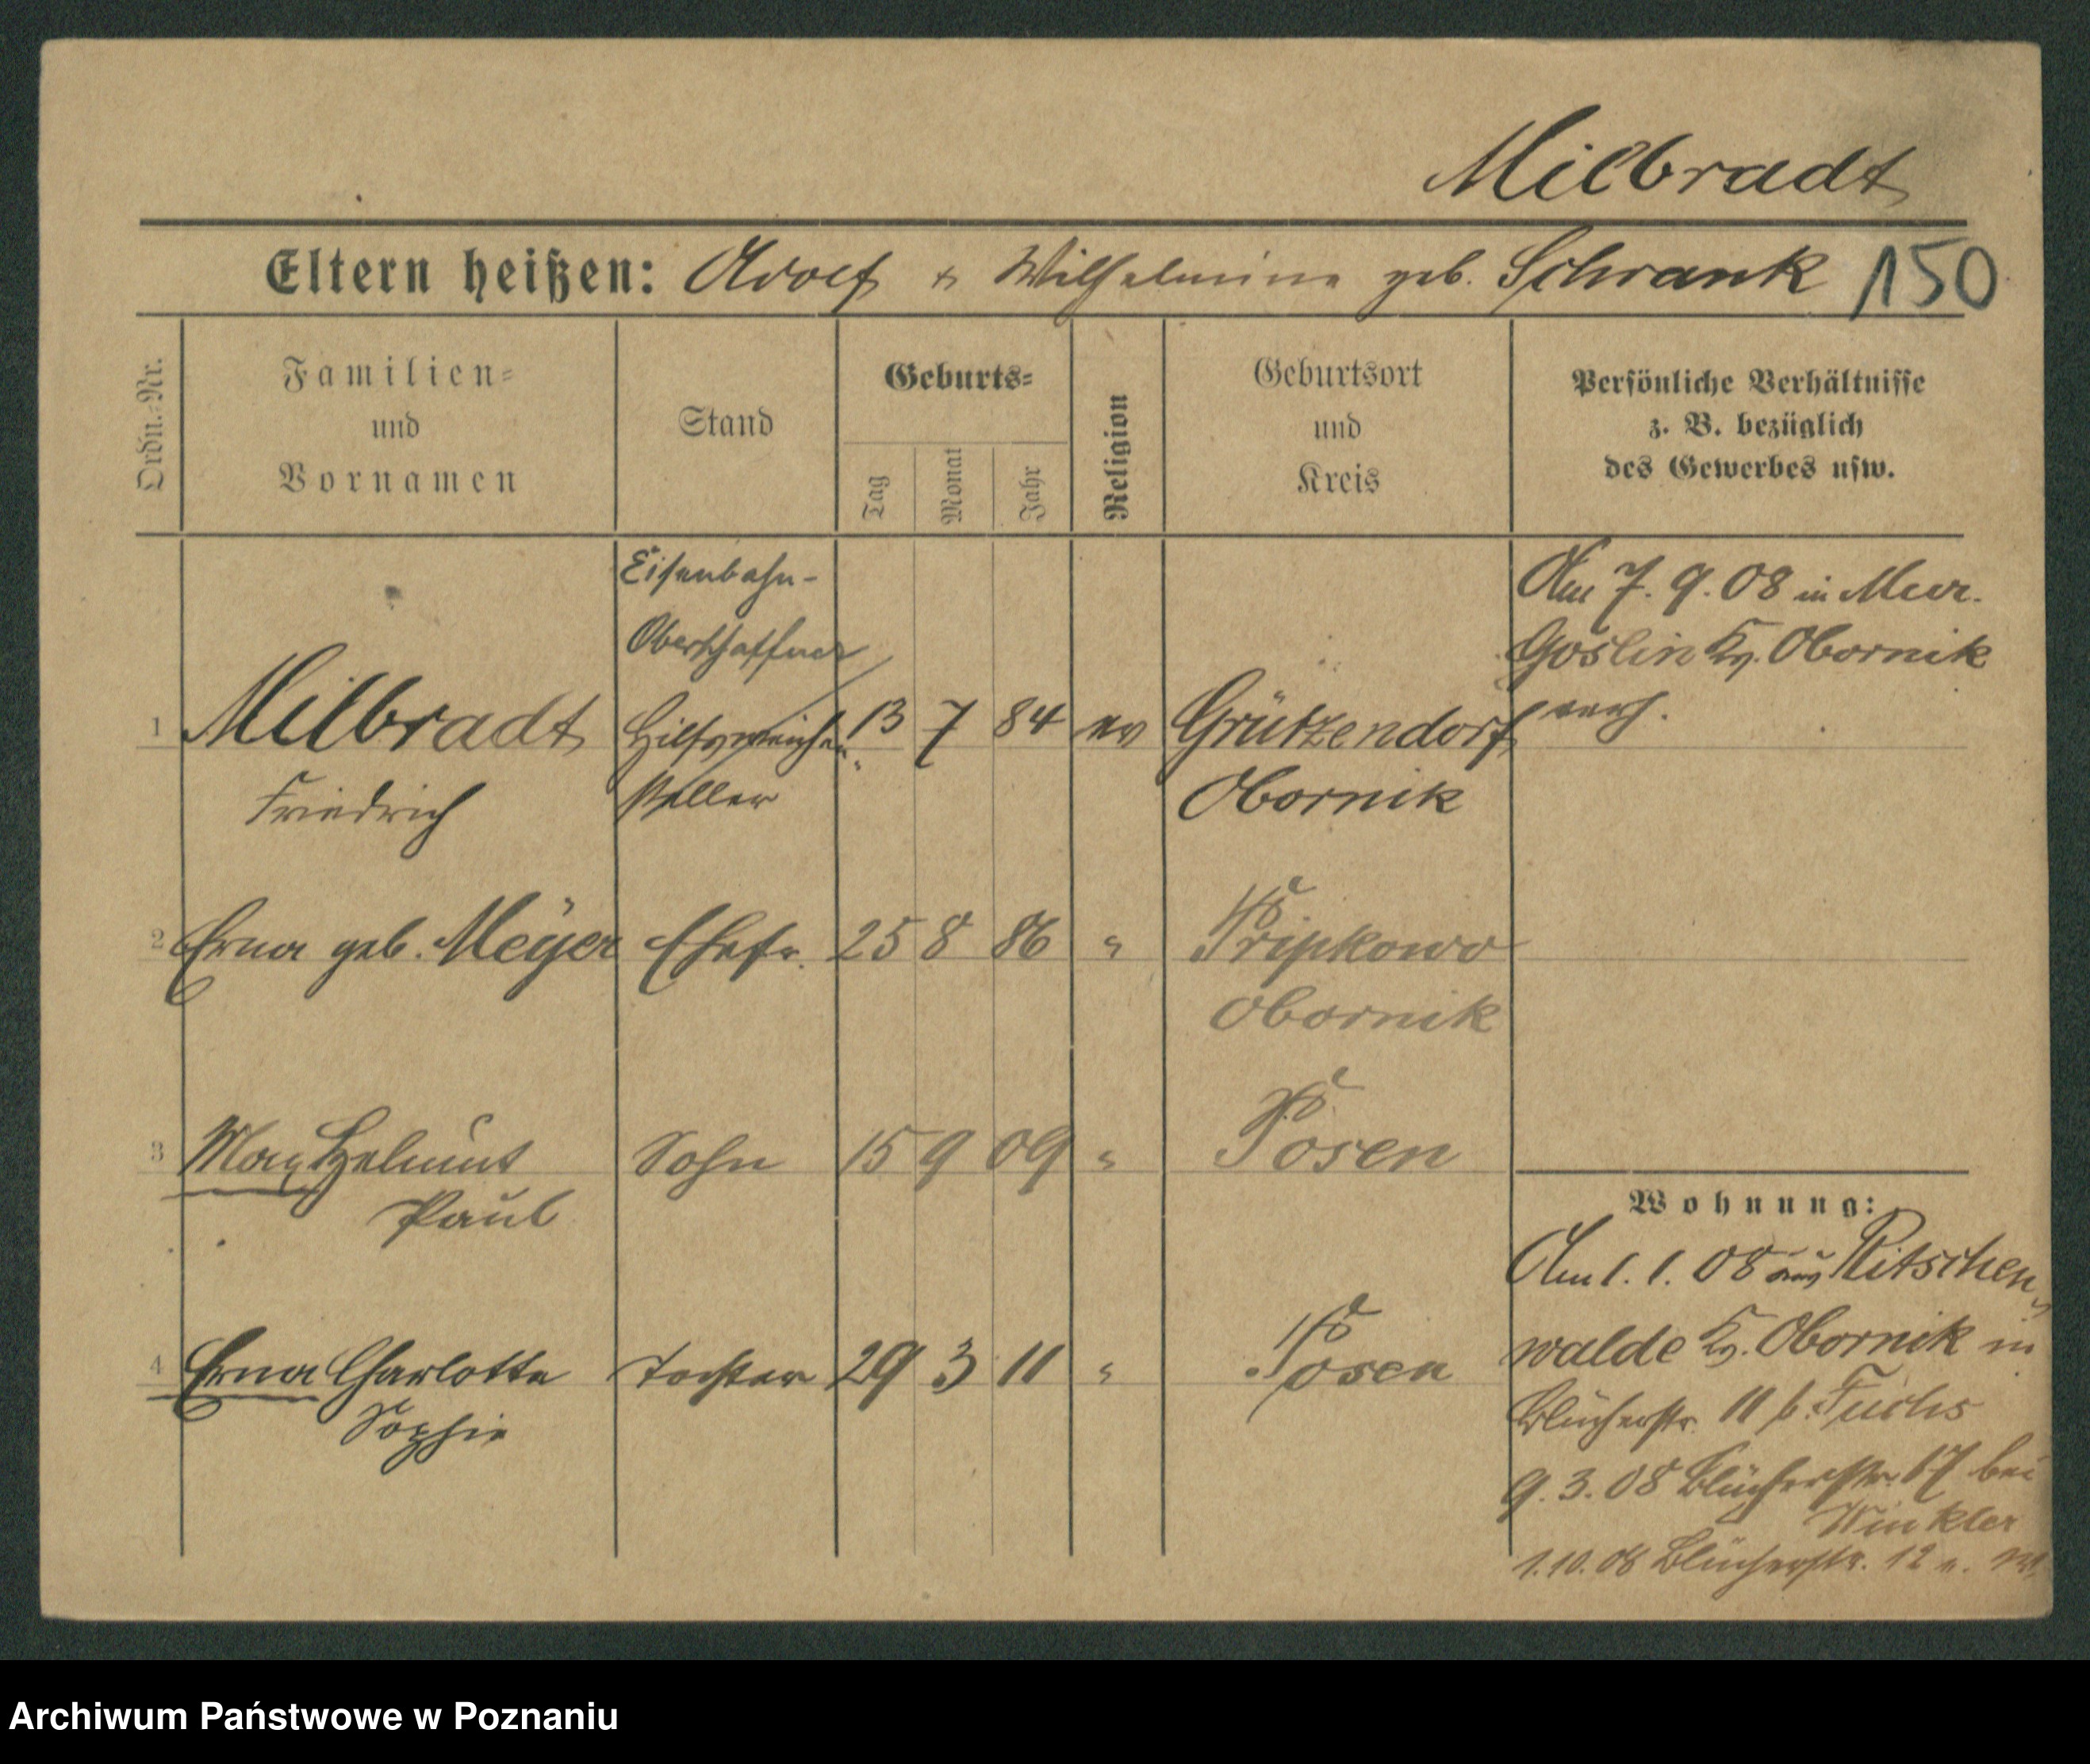 Milbradt
Eltern heißen: Adolf u Wilhelmine geb. Schrank 150
Ordn.-Nr.
Familien-
und
Vornamen
Stand
Geburts-
Tag
Monat
Jahr
Religion
Geburtsort
und
Kreis
Persönliche Verhältnisse
z. B. bezüglich
des Gewerbes usw.
Eisenbahn-
Oberschaffner
1 Milbradt Hilfsweichen- 13 7 84 ev Grützendorf
Friedrich steller Obornik
Am 7. 9. 08 in Mur.
Goslin Kr. Obornik
verh.
2 Erna geb. Meyer Ehefr. 25 8 86 " Pripkowo
Obornik
3 Max Helmut Sohn 15 9 09 " Posen
Paul
4 Erna Charlotte Tochter 29 3 11 " Posen
Sophie
Wohnung:
Am 1. 1. 08 aus Ritschen-
walde Kr. Obornik in
Blücherstr. 11 b. Fuchs
9. 3. 08 Blücherstr. 17 bei
Winkler
1.10.08 Blücherstr. 12
Archiwum Państwowe w Poznaniu